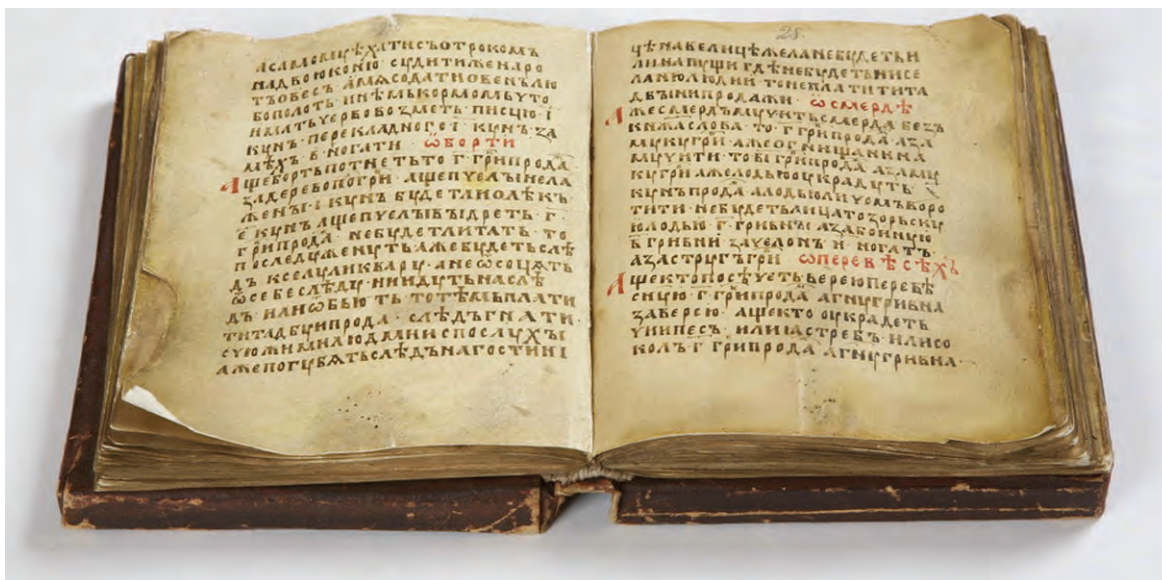 асамомуѣхатисъотрокомъ
надвоюконю·сѹдитиженаро
тъовесъ·амѧсодатиовенълю
бополоть·инѣмькормомьѹто
иматьчервовозметь·писцюі
кѹнъ·перекладногоі·кѹнъ·за
мѣхъ·в҃·ногати· ѡборти
Ащебортьпотнетьто·г҃·гр҃ипрода
задеревополъгр҃и·ащепчелъінела
женъі·і·кѹнъ·бѹдетлиолѣкъ·
е҃·кѹнъ·ащепчелывыідреть·г҃·
гр҃ипрода·небѹдетлитать·то
последѹженѹть·ажебѹдетьслѣ
дъ·кселѹликварѹ·анеѿсочѧть
ѿсебеслѣдѹ·ниидѹтьнаслѣ
дъ·илиѿбьютьтотѣмьплати
титадбѹипрода·слѣдъгнати
счюжимилюдминиспослѹхъі
ажепогѹбѧтьслѣдънагостиніі
28
цѣнавелицѣжеланебѹдетьи
линапѹшигдѣнебѹдетьнисе
ланюлюдии·тонеплатитита
двъінипродажи· ѡсмердѣ
Ажесмердъмѹчитьсмердабезъ
кнѧжаслова·то·г҃·гр҃ипрода·аза
мѹкѹгр҃и·ажеогнищанина
мѹчити·то·в҃і·гр҃ипрода·азамѹ
кѹгр҃и·ажелодьюѹкрадѹть·з҃
кѹнъпрода·алодьюличомъворо
тити·небѹдетьлицатозорьскѹ
юлодью·г҃·гривнъі·азабоинѹю
в҃·гривнъі·зачелонъ·и҃·ногатъ·
азастрѹгъгр҃и· ѡперевѣсѣхъ
Ащектопосѣчетьверею·перевѣ
снѹю·г҃·гр҃ипрода·агнѹгривна
заверею·ащектоѹкрадеть
ѹнипесъ·илиꙗстребъ·илисо
колъ·г҃·гр҃ипрода·агнѹгривна